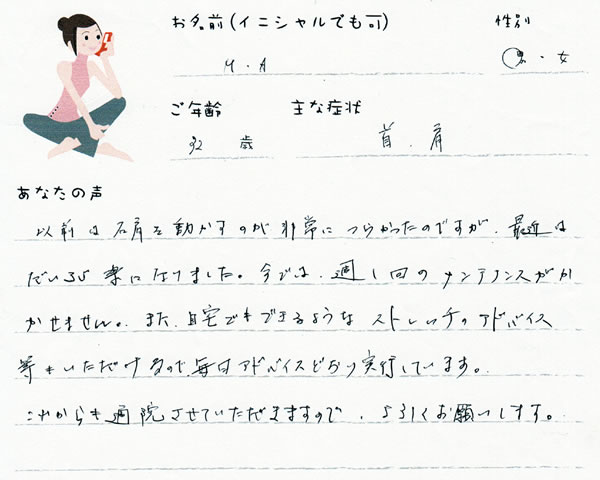 お名前(イニシャルでも可) 性別
M・A 男・女
ご年齢 主な症状
32 歳 首、肩
あなたの声
以前は右肩を動かすのが非常につらかったのですが、最近は
だいぶ楽になりました。今では、週1回のメンテナンスがか
かせません。また、自宅でもできるような ストレッチのアドバイス
等もいただけるので、毎日アドバイスどおり実行しています。
これからも通院させていただきますので、よろしくお願いします。